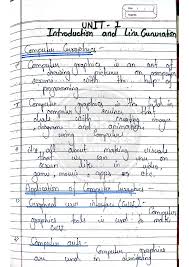 UNIT - 1
Introduction and Line Generation
Computer Graphics -
Computer graphics is an art of
drawing pictures on computer
screens with the help of
programming.
Computer graphics is the
of computer science that
deals with creating images
diagrams and animations
using computers.
It's all about making visuals
that we can use on
screen like in video
game, movies, apps etc.
Application of Computer Graphics
Graphical user interface (GUI) -
Computer
graphics tools is used to make
GUI.
Computer art -
Computer graphics
are used in designing